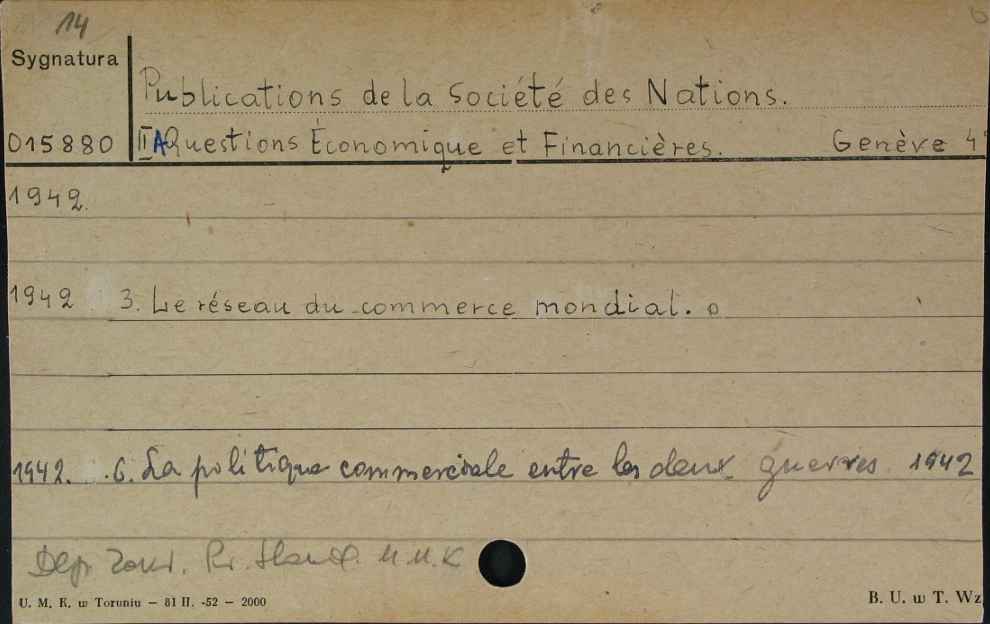 14
Sygnatura
Publications de la Société des Nations.
015880 IIA Questions Économique et Financières. Genève 4°
1942.
1942 3. Le réseau du commerce mondial.
1942. 6. La politique commerciale entre les deux guerres 1942
U. M. K. w Toruniu — 81 II. -52 — 2000
B. U. w T. Wz